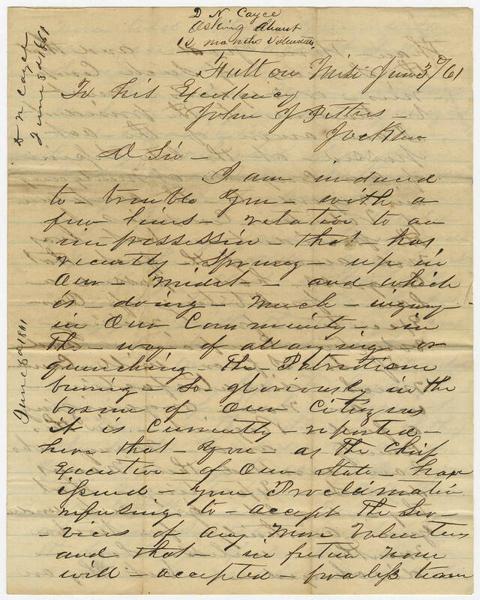 D N Cayce
asking about
12 months Volunteers
D N Cayce
June 3d 1861
Fulton Miss June 3d /61
To his Excellency
John J Pettus
Jackson
D Sir –
I am induced
to – trouble you – with a
few lines – relation to an
impression – that – has
recently – sprung – up in
our – midst – and which
is doing – much – injury –
in our Community – in
the way of allaying or
quenching – the Patriotism
burning – so gloriously in the
bosom of our Citizens
it is currently – reported –
here – that – you – as the Chief
Executive – of our State – have
issued – your Proclamation
refusing to – accept the Ser
-vices of any more Volunteers
and that – in future none
will – accepted – for a less term
June 3d 1861